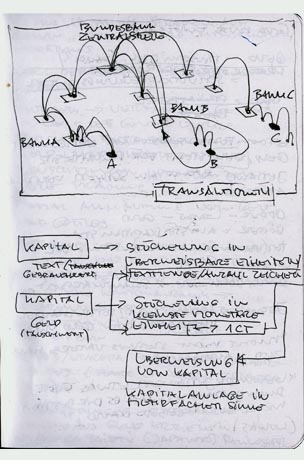 BUNDESBANK
ZENTRALSTELLE
BANK C
BANK B
BANK A
A
B
C
TRANSAKTIONEN
KAPITAL → STÜCKELUNG IN
TEXT/TAUSCHWERT ÜBERWEISBARE EINHEITEN
GEBRAUCHSWERT TEXTLÄNGE/ANZAHL ZEICHEN
KAPITAL → STÜCKELUNG IN
GELD KLEINSTE MONETÄRE
(TAUSCHWERT) EINHEIT → 1 CT
ÜBERWEISUNG
VON KAPITAL
KAPITALANLAGE IN
MEHRFACHEM SINNE